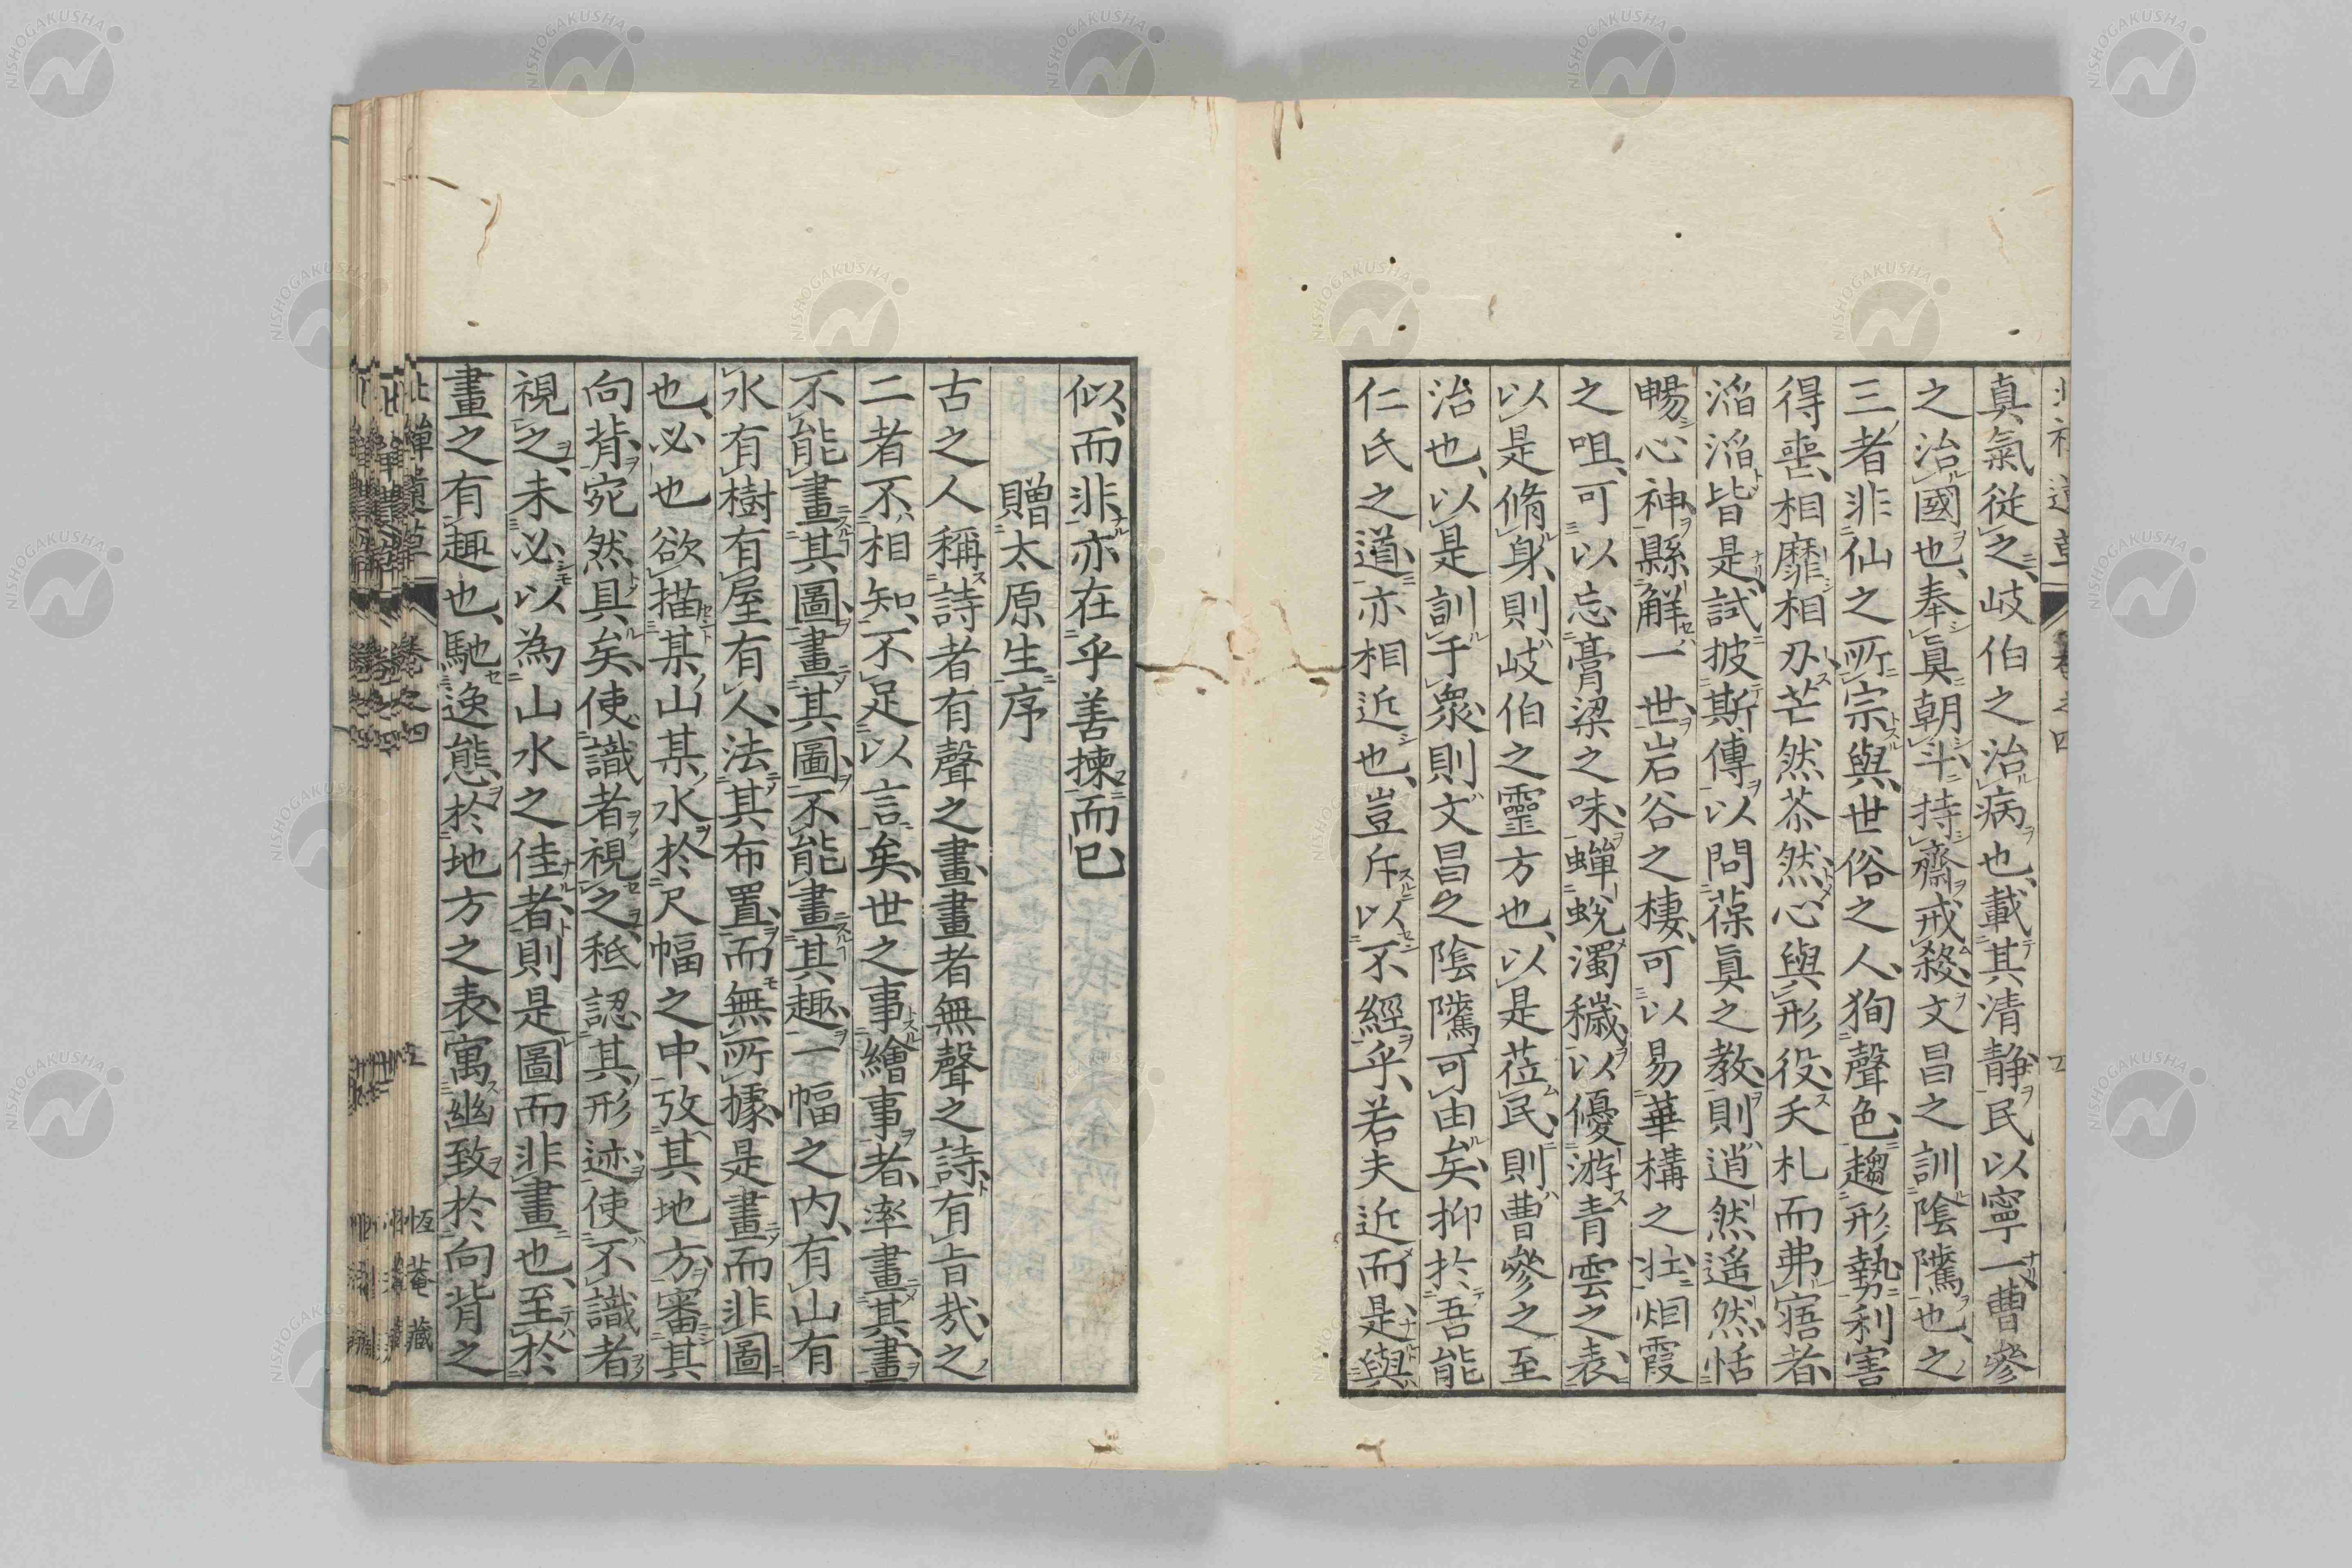 真氣從之岐伯之治病也載其清靜民以寧一曹參
之治國也奉眞朝斗持齋戒殺文昌之訓陰隲也之
三者非仙之所宗與世俗之人狥聲色趨形勢利害
得喪相靡相刃芒然苶然心與形役夭札而弗寤者
滔滔皆是試披斯傳以問葆眞之教則逍然遙然恬
暢心神縣解一世岩谷之棲可以易華構之壯烟霞
之咀可以忘膏粱之味蟬蛻濁穢以優游青雲之表
以是脩身則岐伯之靈方也以是莅民則曹參之至
治也以是訓于衆則文昌之陰隲可由矣抑於吾能
仁氏之道亦相近也豈斥以不經乎若夫近而是與
似而非亦在乎善揀而已
贈太原生序
古之人稱詩者有聲之畫畫者無聲之詩有旨哉之
二者不相知不足以言矣世之事繪事者率畫其畫
不能畫其圖畫其圖不能畫其趣一幅之内有山有
水有樹有屋有人法其布置而無所據是畫而非圖
也必也欲描某山某水於尺幅之中攷其地方審其
向背宛然具矣使識者視之秪認其形迹使不識者
視之未必以為山水之佳者則是圖而非畫也至於
畫之有趣也馳逸態於地方之表寓幽致於向背之
北禪遺草 卷之四 恆菴藏
NISHOGAKUSHA